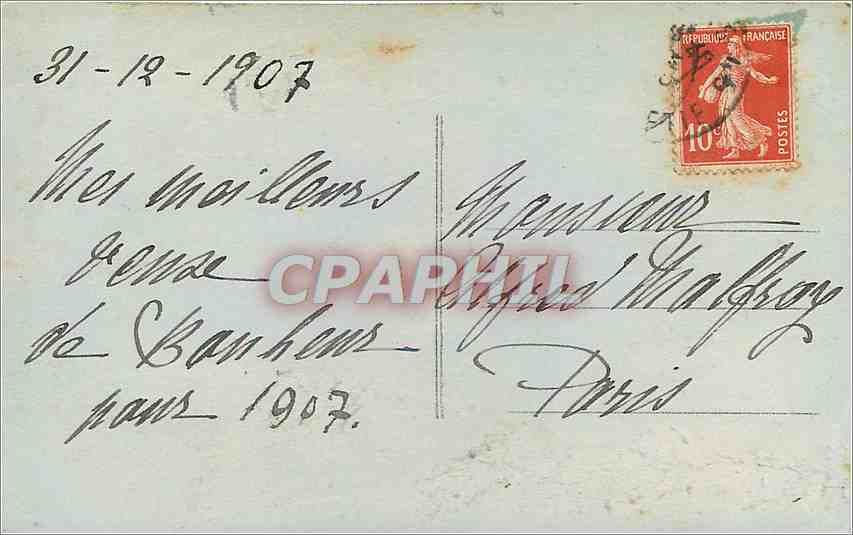 31-12-1907
Mes meilleurs
veuxe
de Bonheur
pour 1907.
Monsieur
Alfred Malfroy
Paris
REPUBLIQUE FRANÇAISE
10c
POSTES
CPAPHIL